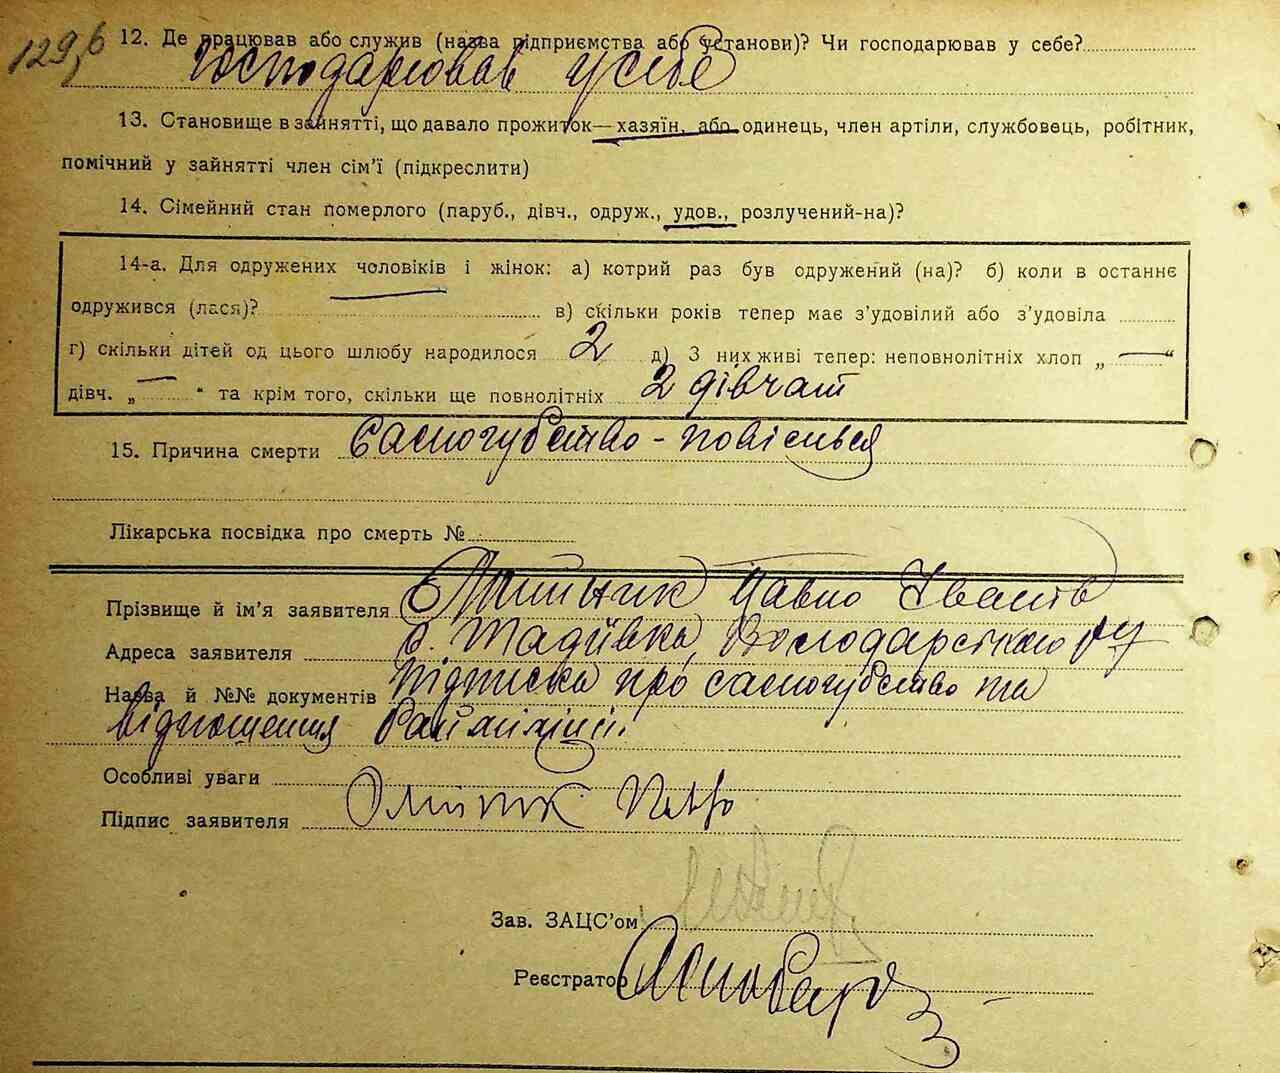 129б 12. Де працював або служив (назва підприємства або установи)? Чи господарював у себе?
Господарював у себе
13. Становище в зайнятті, що давало прожиток—хазяїн, або одинець, член артіли, службовець, робітник,
помічний у зайнятті член сім’ї (підкреслити)
14. Сімейний стан померлого (паруб., дівч., одруж., удов., розлучений-на)?
14-а. Для одружених чоловіків і жінок: а) котрий раз був одружений (на)? б) коли в останнє
одружився (лася)? в) скільки років тепер має з’удовілий або з’удовіла
г) скільки дітей од цього шлюбу народилося 2 д) З них живі тепер: неповнолітніх хлоп „—“
дівч. „—“ та крім того, скільки ще повнолітніх 2 дівчат
15. Причина смерти Самогубство - повісився
Лікарська посвідка про смерть №
Прізвище й ім’я заявителя Павло Іванів
Адреса заявителя с. Тадіївка, Володарського р-ну
Назва й №№ документів Підписка про самогубство та
відношення Райміліції.
Особливі уваги
Підпис заявителя Олійник
Зав. ЗАЦС’ом
Реєстратор